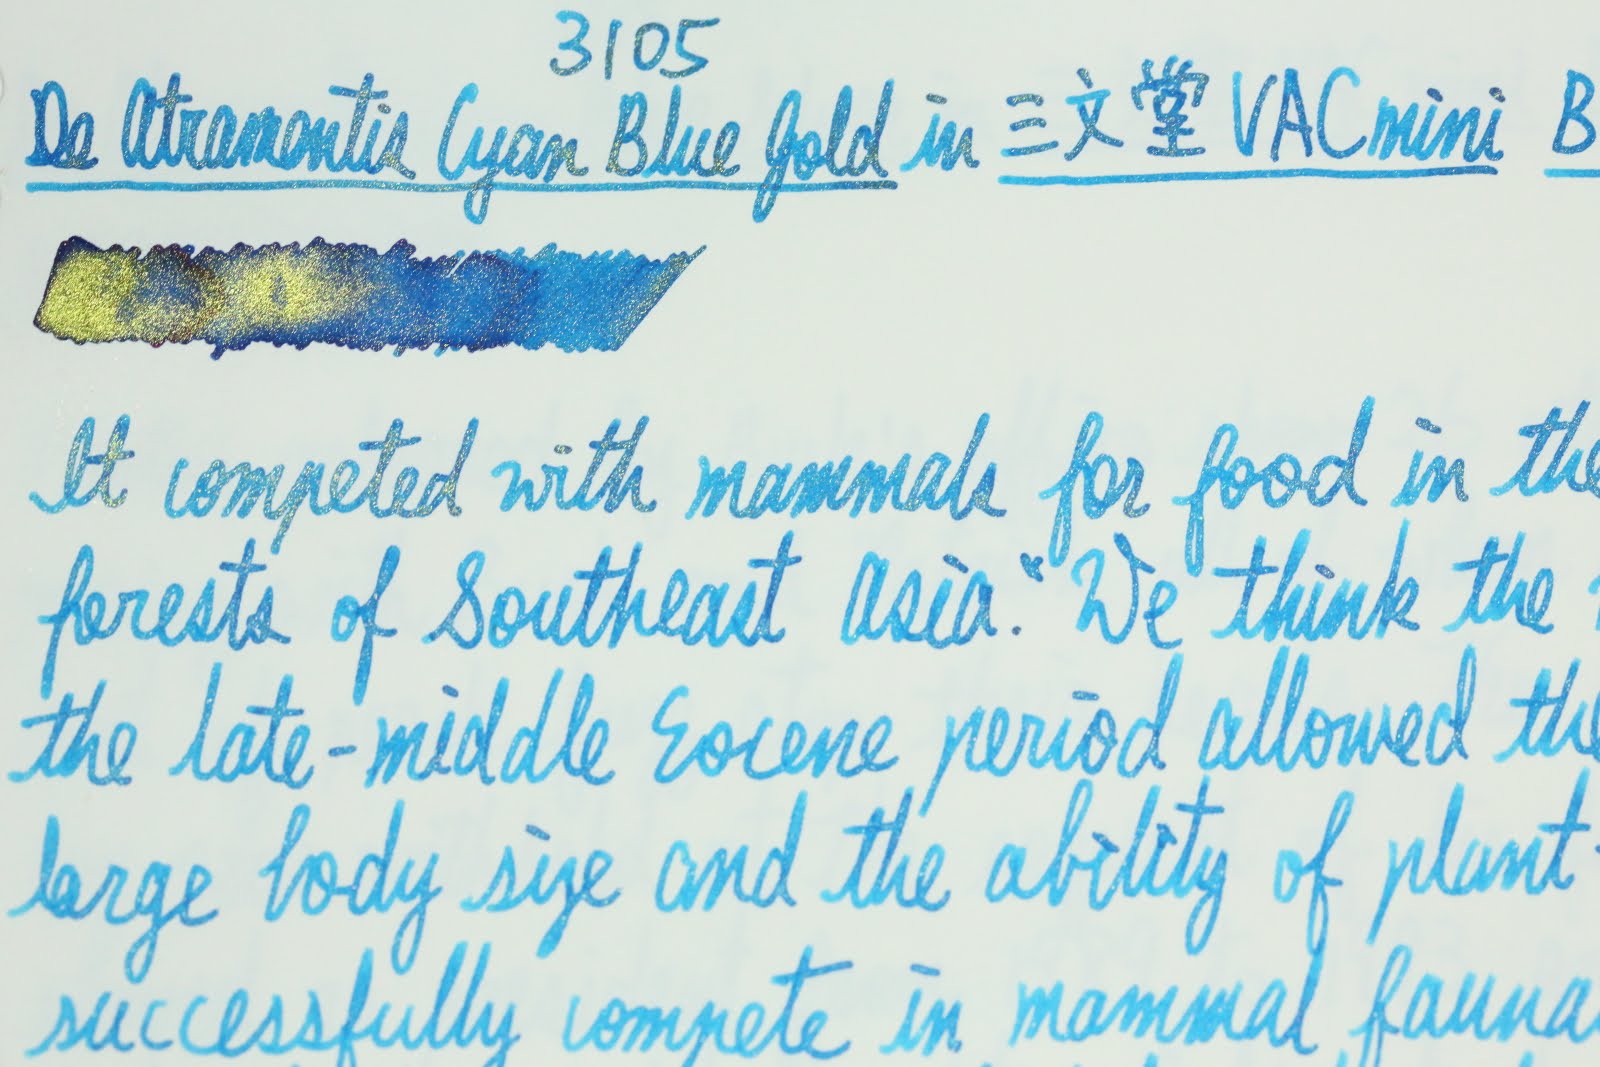 3105
De Atramentis Cyan Blue Gold in 三文堂 VACmini B
It competed with mammals for food in the
forests of Southeast Asia." We think the
the late-middle Eocene period allowed the
large body size and the ability of plant-
successfully compete in mammal fauna